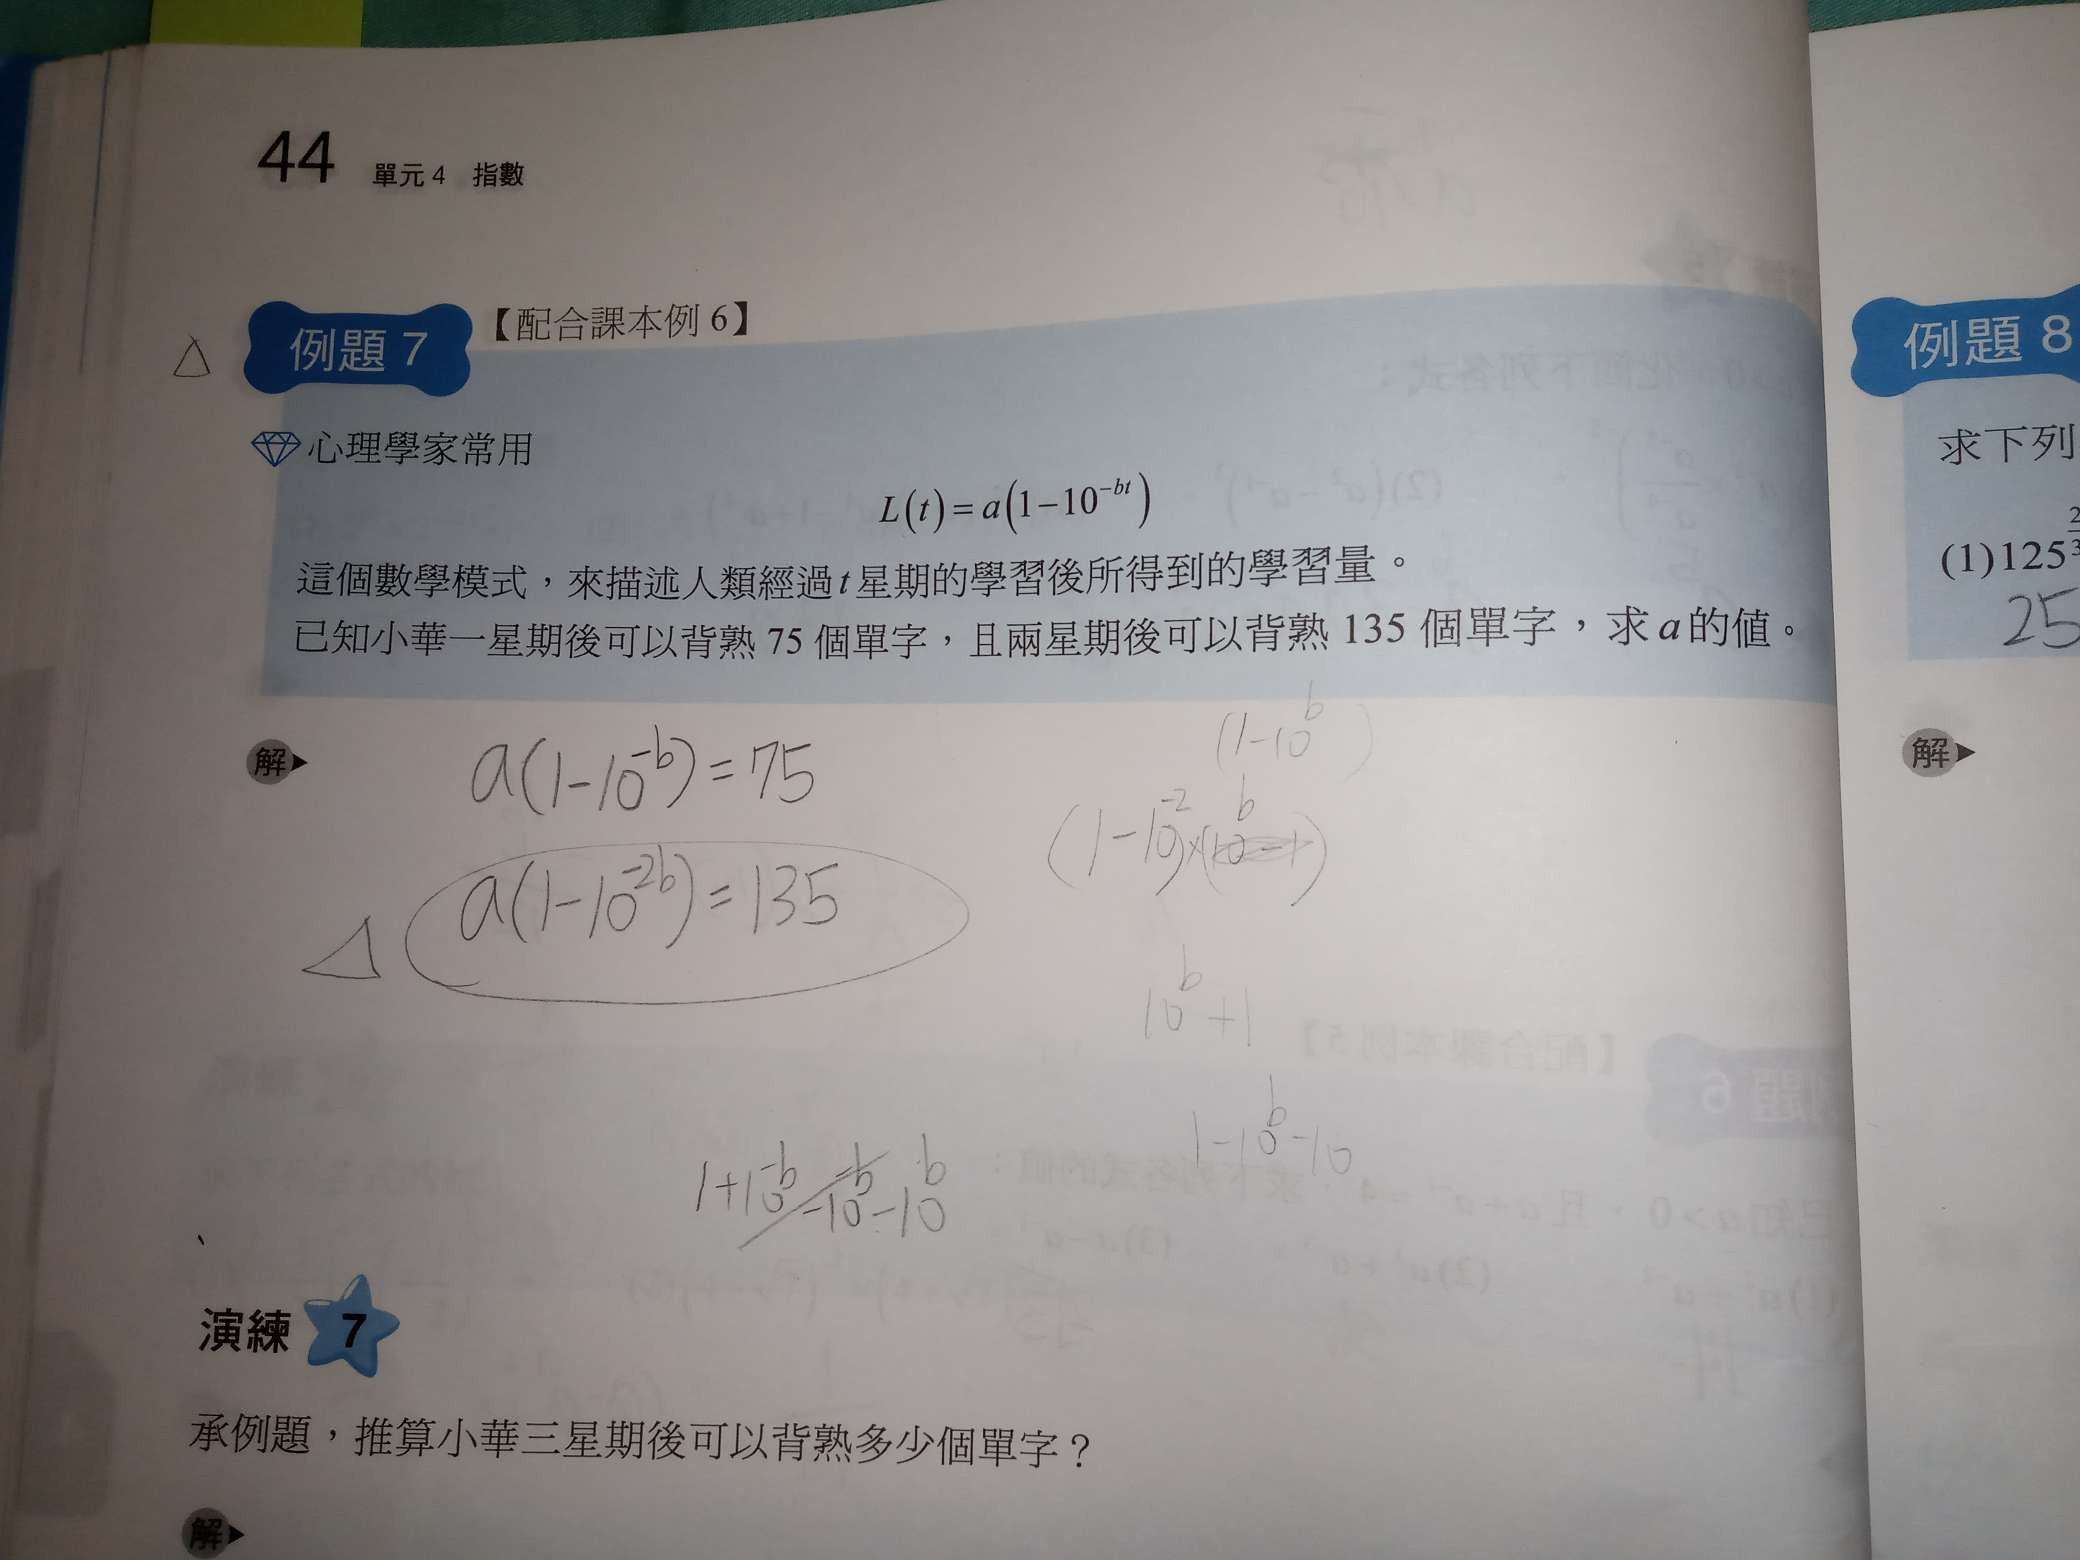 44 單元 4 指數
例題 7 【配合課本例 6】
心理學家常用
L(t)=a(1-10^{-bt})
這個數學模式，來描述人類經過 t 星期的學習後所得到的學習量。
已知小華一星期後可以背熟 75 個單字，且兩星期後可以背熟 135 個單字，求 a 的值。
解
a(1-10^{-b})=75
a(1-10^{-2b})=135
(1-10^b)
10^b+1
1-10^b-10
1+10^{-b}-10^{-b}-10^b
演練 7
承例題，推算小華三星期後可以背熟多少個單字？
解
例題 8
求下列
(1)125^{2/3}
25
解